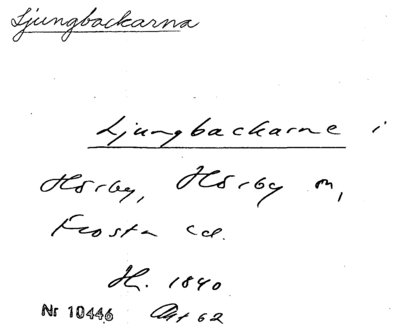 Ljungbackarna
Ljungbackarne i
Hörby, Hörby sn,
Frosta hd.
H. 1840
Nr 10446 Akt 62